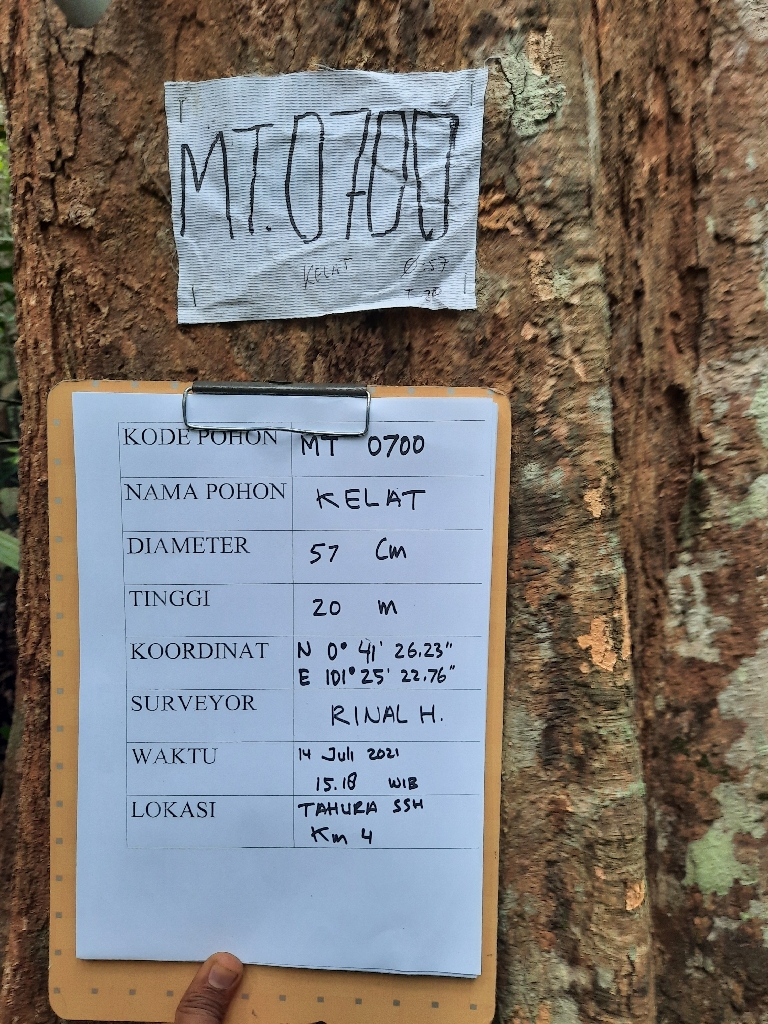 MT.0700
KELAT Ø 57
T 20
KODE POHON MT 0700
NAMA POHON KELAT
DIAMETER 57 Cm
TINGGI 20 m
KOORDINAT N 0° 41' 26.23"
E 101° 25' 22.76"
SURVEYOR RINAL H.
WAKTU 14 Juli 2021
15.18 WIB
LOKASI TAHURA SSH
Km 4